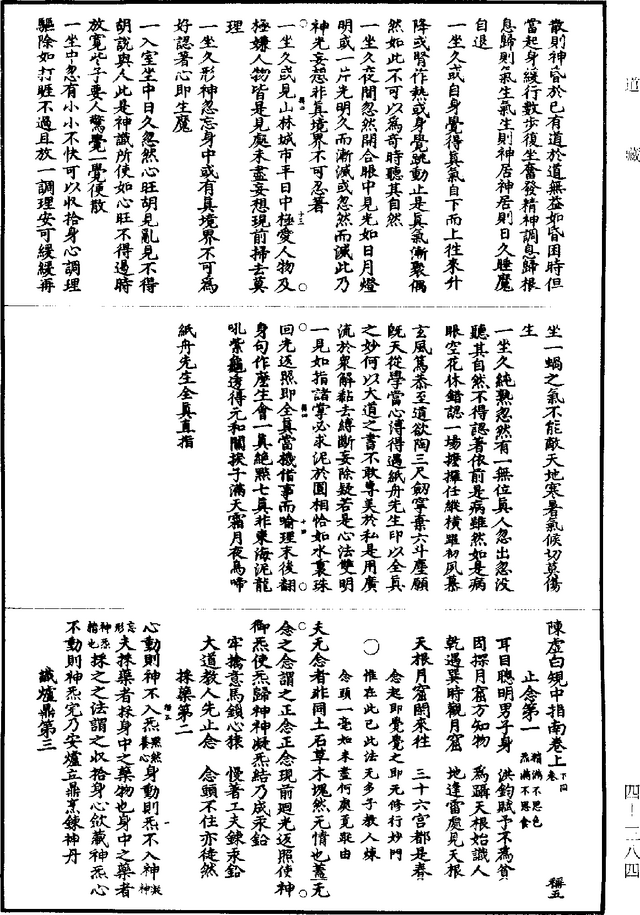 道藏
散則神昏於已有道於道無益如昏困時但
當起身緩行數步復坐奮發精神調息歸根
息歸則氣生氣生則神居神居則日久睡魔
自退
一坐久或自身覺得真氣自下而上往來升
降或腎作熱或身覺跳動止是真氣漸聚偶
然如此不可以為奇時聽其自然
一坐久夜間忽然開合眼中見光如日月燈
明或一片光明久而漸滅或忽然而滅此乃
神光妄想非真境界不可忍著
一坐久或見山林城市平日中極愛人物及
極嫌人物皆是見處未盡妄想現前掃去莫
理
一坐久形神忽忘身中或有真境界不可為
好認著心即生魔
一入室坐中日久忽然心旺胡見亂見不得
胡說與人此是神識所使如心旺不得過時
放寬些子要人驚覺一覺便散
一坐中忽有小小不快可以收拾身心調理
驅除如打睚不過且放一調理安可緩緩再
坐一蝸之氣不能敵天地寒暑氣候切莫傷
生
一坐久純熟忽然有一無位真人忽出忽没
聽其自然不得認著依前是病雖然如是病
眼空花休錯認一場攞任縱橫雖初夙慕
玄風篤恭至道欲陶三尺劒寧棄六斗塵願
既天從學當心溥得遇紙舟先生印以全真
之妙何以大道之書不敢專美於私是用廣
流於衆解黏去縛斷妄除疑若是心法雙明
一見如指諸掌必求泥於圓相恰如水裏珠
回光返照即全真當機借事而喻理末後翻
身句作麼生會一真絶點七真非東海泥龍
吼紫龜透得元和關捩子滿天霜月夜烏啼
紙舟先生全真直指
陳虛白規中指南卷上 下同卷 稱五
止念第一 精滿不思色 炁滿不思食
耳目聰明男子身 洪鈞賦予不為貧
因探月窟方知物 為躡天根始識人
乾遇巽時觀月窟 地逢雷處見天根
天根月窟閒來往 三十六宮都是春
念起即覺覺之即无修行妙門
惟在此已此法无多子教人煉
念頭一毫如未盡何處覓取由
夫无念者非同土石草木塊然无情也蓋无
念之念謂之正念正念現前廻光返照使神
御炁使炁歸神神凝炁結乃成汞鉛
牢擒意馬鎖心猿 慢著工夫錬汞鉛
大道教人先止念 念頭不住亦徒然
採藥第二
心動則神不入炁 身動則炁不入神
夫採藥者採身中之藥物也身中之藥者
神炁採之之法謂之收拾身心斂藏神炁心
不動則神炁完乃安爐立鼎烹錬神丹
識爐鼎第三
四—三八四